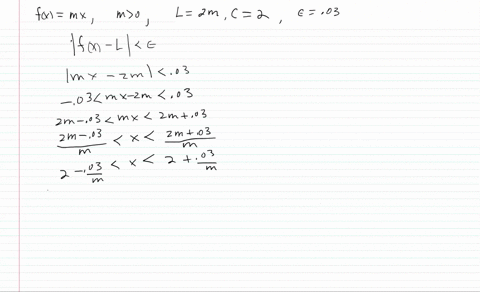 f(x) = mx, m>0, L = 2m, C = 2, ε = .03
|f(x) - L| < ε
|mx - 2m| < .03
-.03 < mx - 2m < .03
2m - .03 < mx < 2m + .03
(2m - .03)/m < x < (2m + .03)/m
2 - .03/m < x < 2 + .03/m